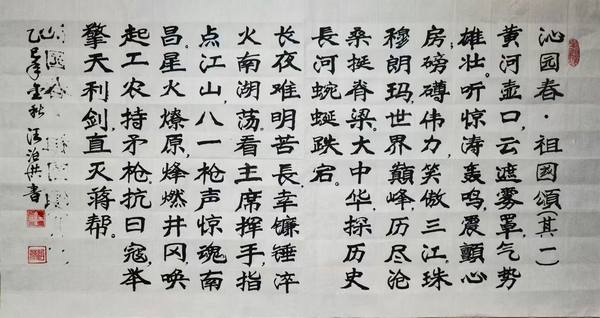 沁园春·祖国頌(其一)
黄河壶口,云遮雾罩,气势
雄壮。听惊涛轰鸣,震顫心
房,磅礴伟力,笑傲三江。珠
穆朗玛,世界巅峰,历尽沧
桑挺脊梁。大中华,探历史
長河,蜿蜒跌宕。
长夜难明苦長,幸镰锤淬
火南湖荡。看主席挥手,指
点江山,八一枪声,惊魂南
昌。星火燎原,烽燃井冈,唤
起工农持矛枪。抗日寇,举
擎天利剑,直灭蒋帮。
乙巳年 秋 汪泊洪书